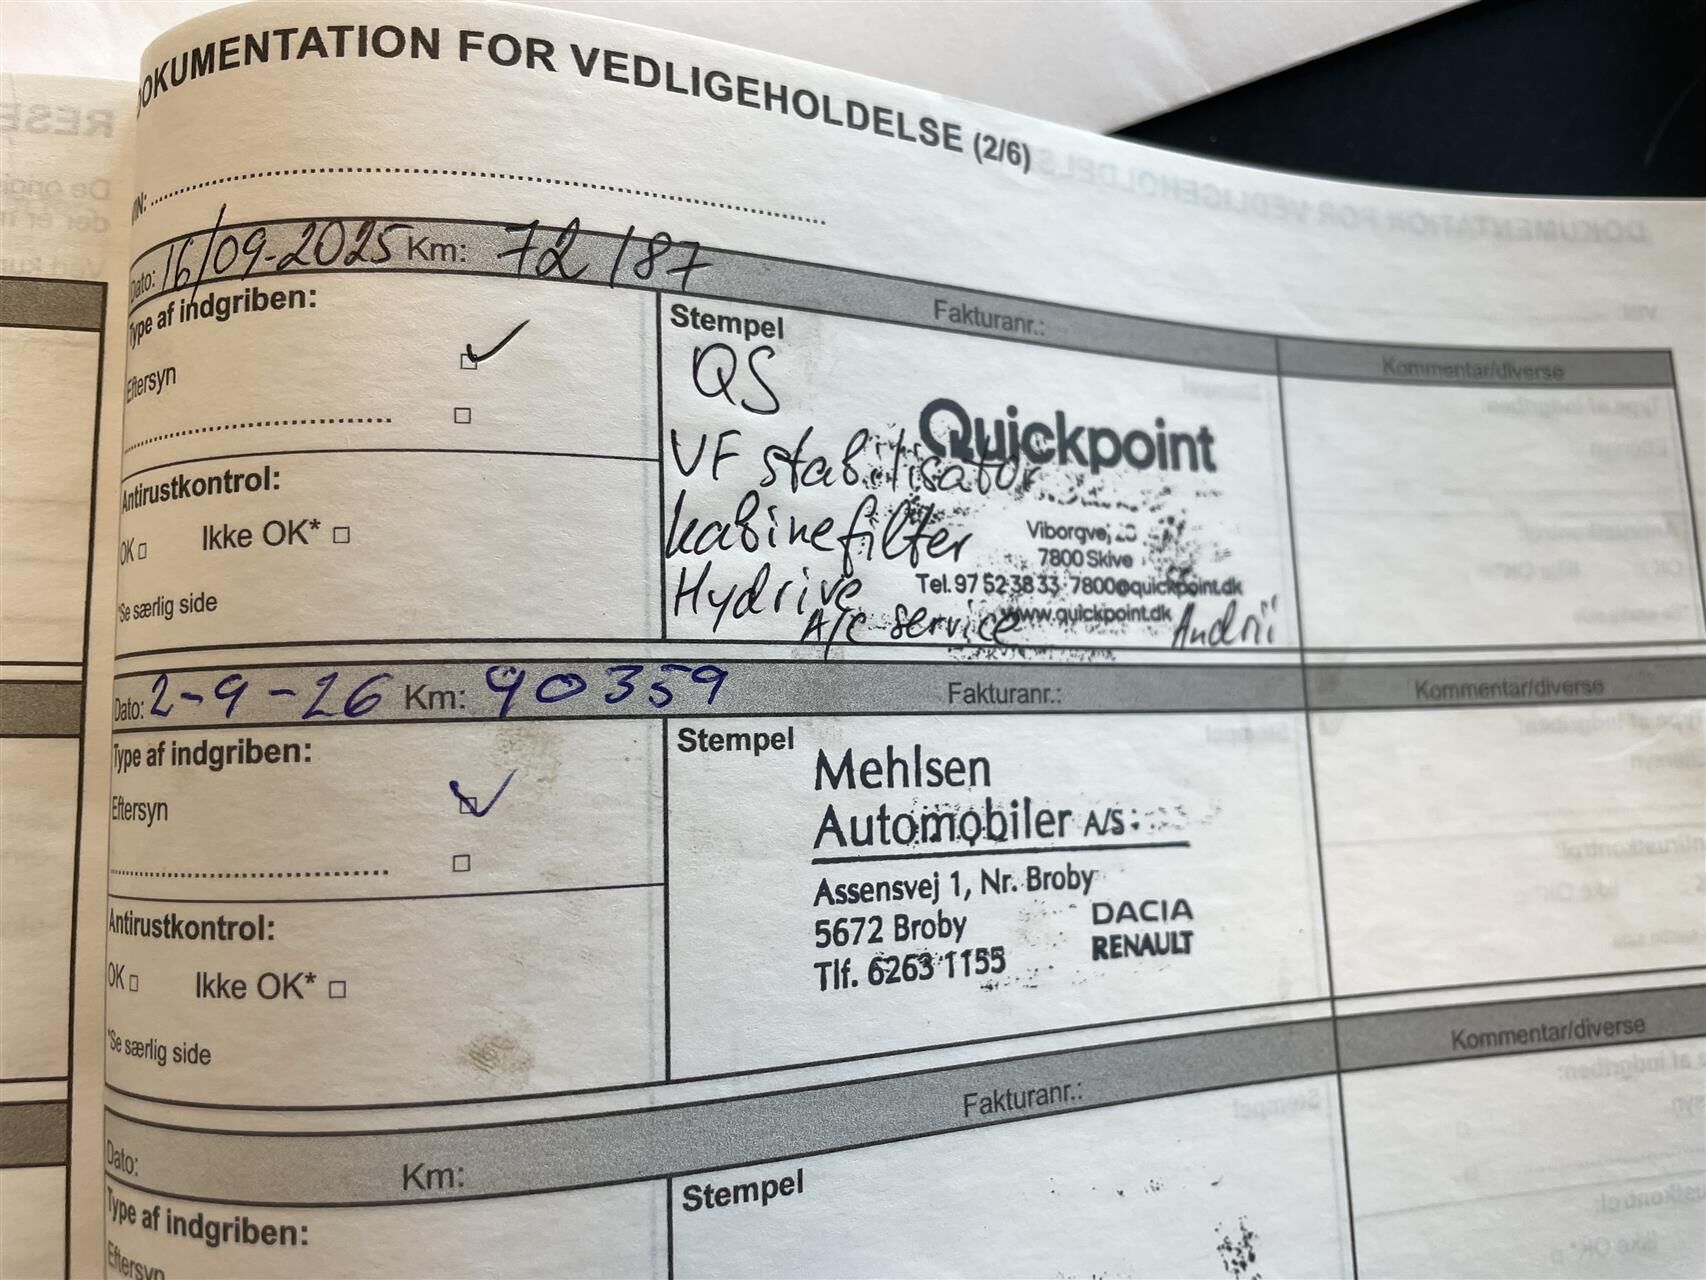 DOKUMENTATION FOR VEDLIGEHOLDELSE (2/6)
VIN:
Dato: 16/09-2025 Km: 72 187
Fakturanr.:
Kommentar/diverse
Type af indgriben:
Eftersyn
Antirustkontrol:
OK Ikke OK*
*Se særlig side
Stempel
QS
VF stabilisator
kabinefilter
Hydrive
A/C service
Andrii
Quickpoint
Viborgvej
7800 Skive
Tel. 97 52 38 33 7800@quickpoint.dk
www.quickpoint.dk
Dato: 2-9-26 Km: 90359
Fakturanr.:
Kommentar/diverse
Type af indgriben:
Eftersyn
Antirustkontrol:
OK Ikke OK*
*Se særlig side
Stempel
Mehlsen
Automobiler A/S
Assensvej 1, Nr. Broby
5672 Broby
Tlf. 6263 1155
DACIA
RENAULT
Dato:
Km:
Fakturanr.:
Kommentar/diverse
Type af indgriben:
Eftersyn
Stempel